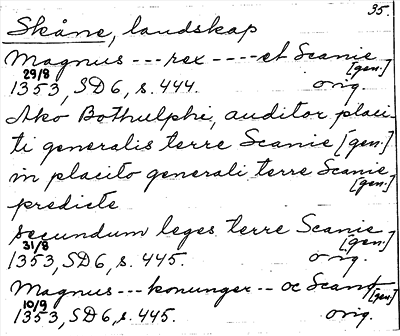 35.
Skåne, landskap
Magnus --- rex ---- et Scanie [gen.]
29/8
1353, SD6, s. 444. orig.
Ako Bothulphi, auditor placi-
ti generalis terre Scanie [gen.]
in placito generali terre Scanie [gen.]
predicte
secundum leges terre Scanie [gen.]
31/8
1353, SD6, s. 445. orig.
Magnus --- konunger -- oc [gen.]
10/9
1353, SD6, s. 445. orig.